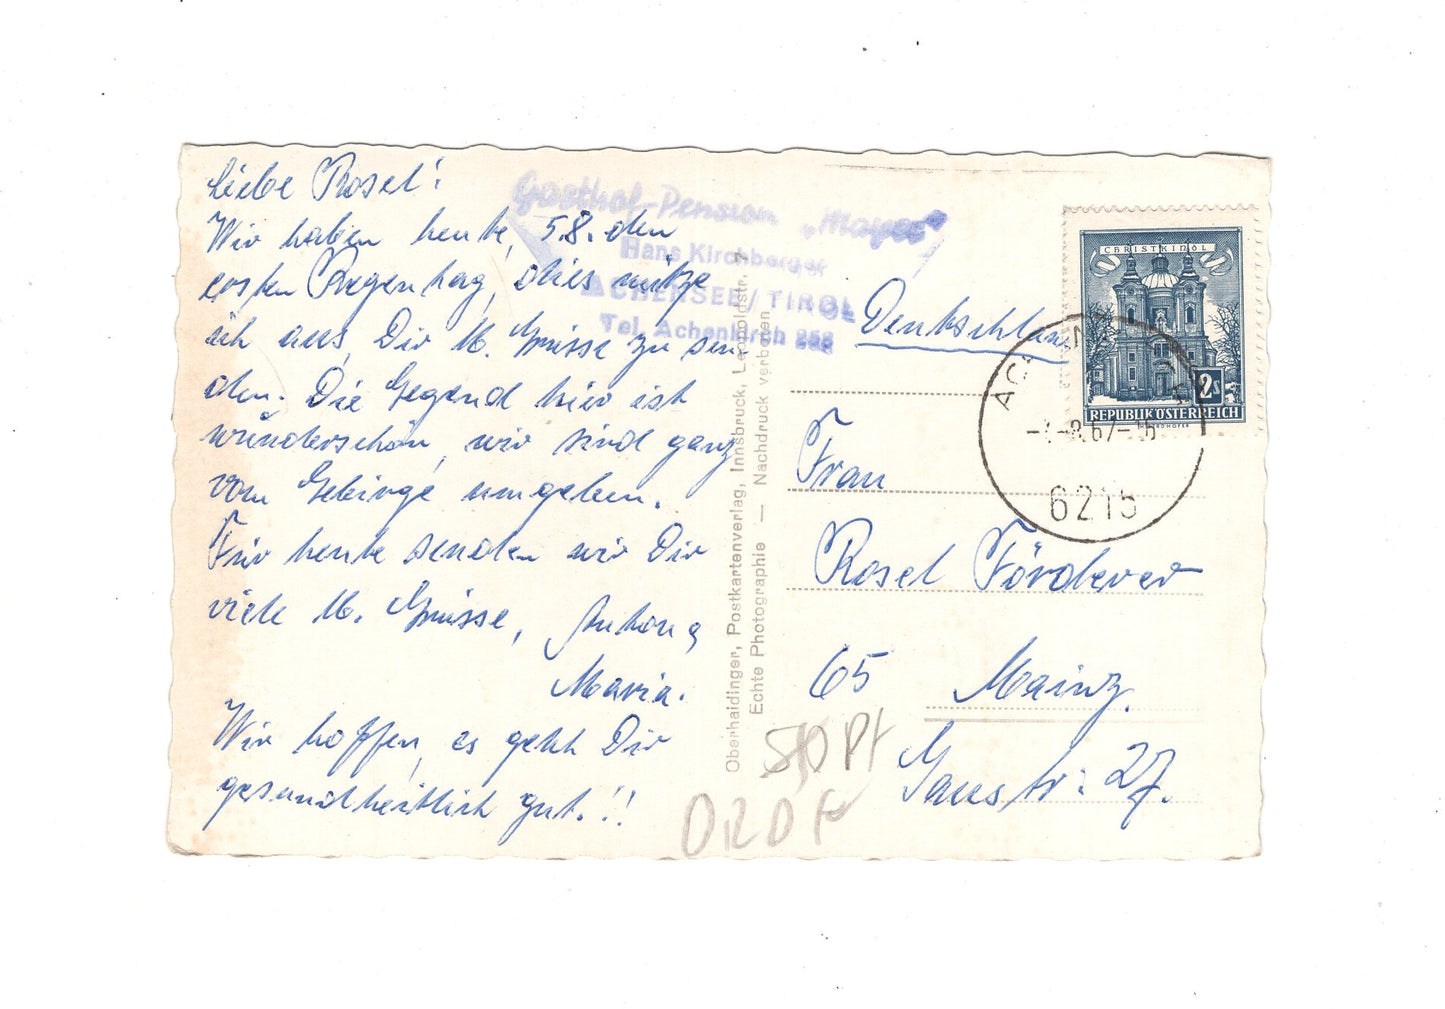 Liebe Rosel!
Wir haben heute, 5.8. den
ersten Regentag, dies nütze
ich aus, Dir lb. Grüsse zu sen
den. Die Gegend hier ist
wunderschön, wir sind ganz
vom Gebirge umgeben.
Für heute senden wir Dir
viele lb. Grüsse,
Maria.
Wir hoffen, es geht Dir
gesundheitlich gut!!
Gasthof-Pension „Mayer"
Hans Kirchberger
ACHENSEE/TIROL
Tel. Achenkirch
Oberhaidinger, Postkartenverlag, Innsbruck, Leopoldstr. 7
Echte Photographie — Nachdruck verboten
CHRISTKINDL
2s
REPUBLIK ÖSTERREICH
67-16
6215
Deutschland
Frau
Rosel Förderer
65 Mainz.
Gaustr: 27.
50 Pf